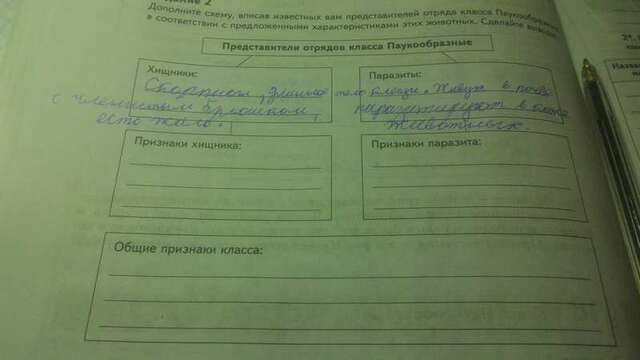 ние 2
Дополните схему, вписав известных вам представителей отряда класса Паукообразные
в соответствии с предложенными характеристиками этих животных. Сделайте вывод.
Представители отрядов класса Паукообразные
Хищники:
Скорпион,
с членистым брюшком,
есть жало.
Паразиты:
тело клещи. Живут в почве
паразитируют в
животных.
Признаки хищника:
Признаки паразита:
Общие признаки класса:
21.
Назва